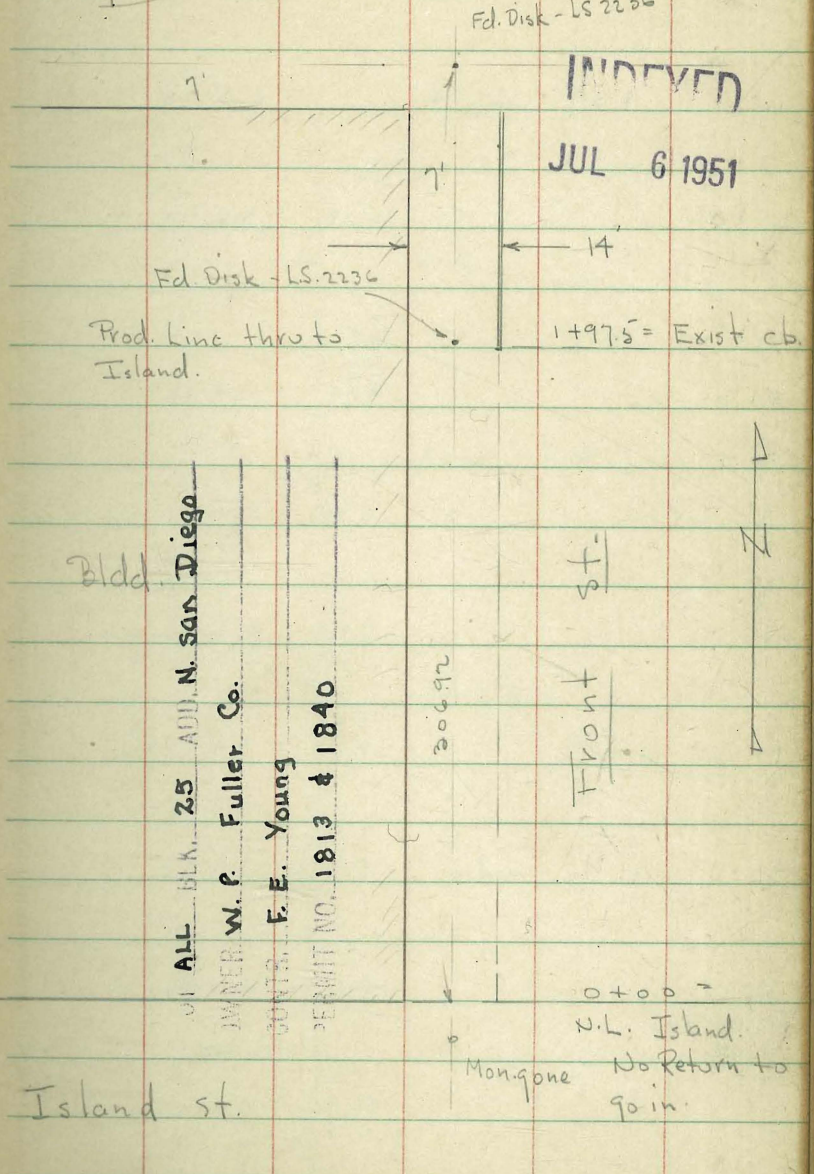 Fd. Disk - LS 2236
INDEXED
7'
JUL 6 1951
7'
14'
Fd. Disk - L.S. 2236
Prod. Line thru to
Island.
1+97.5 = Exist cb.
Bldd.
LOT ALL BLK. 25 ADD. N. San Diego
OWNER W. P. Fuller Co.
CONTR. F. E. Young
PERMIT NO. 1813 & 1840
306.92
Front St.
N
0+00 =
N.L. Island.
No Return to
go in.
Mon. gone
Island St.